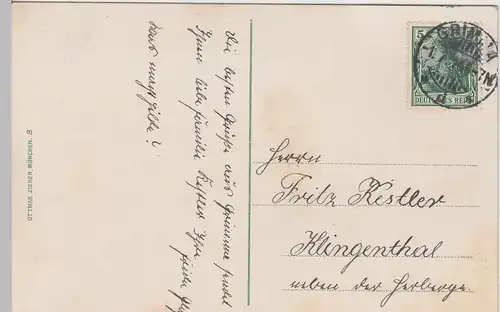 OTTMAR ZIEHER, MÜNCHEN. B
Die besten Grüße aus Grimma sendet
Ihnen liebe Familie Kestler Ihre
was macht Hilde?
5
DEUTSCHES REICH
GRIMMA
Herrn
Fritz Kestler
Klingenthal
neben der Herberge.